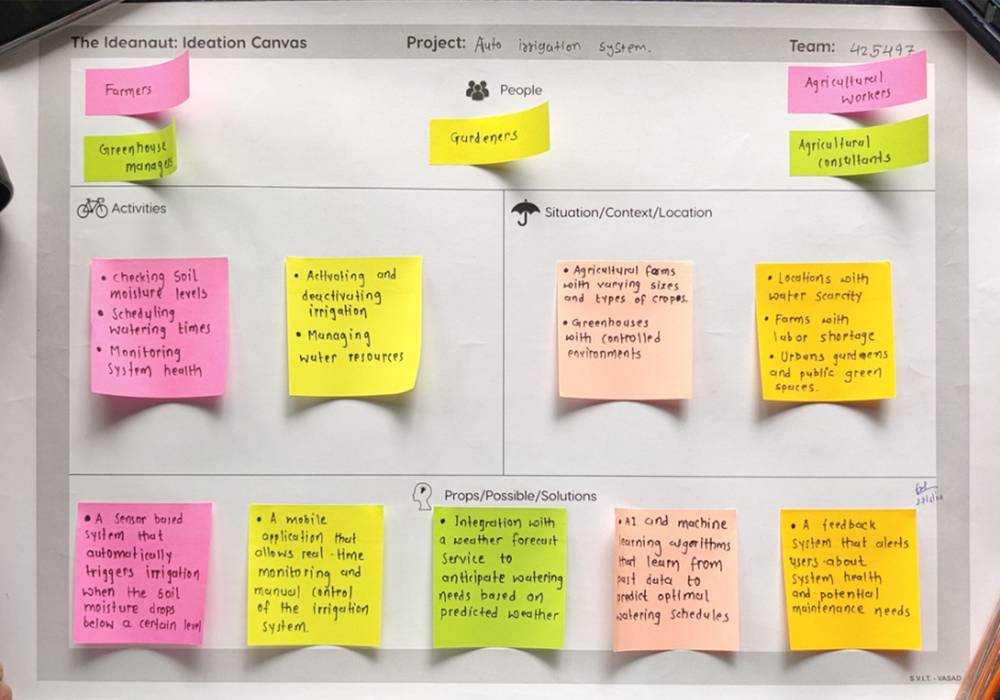 The Ideanaut: Ideation Canvas
Project: Auto irrigation system.
Team: 425497
People
Farmers
Greenhouse
managers
Gardeners
Agricultural
workers
Agricultural
consultants
Activities
• checking Soil
moisture levels
• Scheduling
watering times
• Monitoring
System health
• Activating and
deactivating
irrigation
• Managing
water resources
Situation/Context/Location
• Agricultural farms
with varying sizes
and types of cropes.
• Greenhouses
with controlled
environments
• Locations with
water scarcity
• Farms with
labor shortage
• Urbans gardeens
and public green
spaces.
Props/Possible/Solutions
• A Sensor based
system that
automatically
triggers irrigation
when the soil
moisture drops
below a certain level
• A mobile
application that
allows real-time
monitoring and
manual control
of the irrigation
system.
• Integration with
a weather forecast
service to
anticipate watering
needs based on
predicted weather
• AI and machine
learning algorithms
that learn from
past data to
predict optimal
watering schedules
• A feedback
system that alerts
users about
system health
and potential
maintenance needs
S.V.I.T. - VASAD